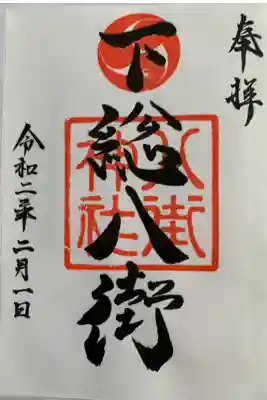 奉拝
下総八街
八街神社
令和二年二月一日